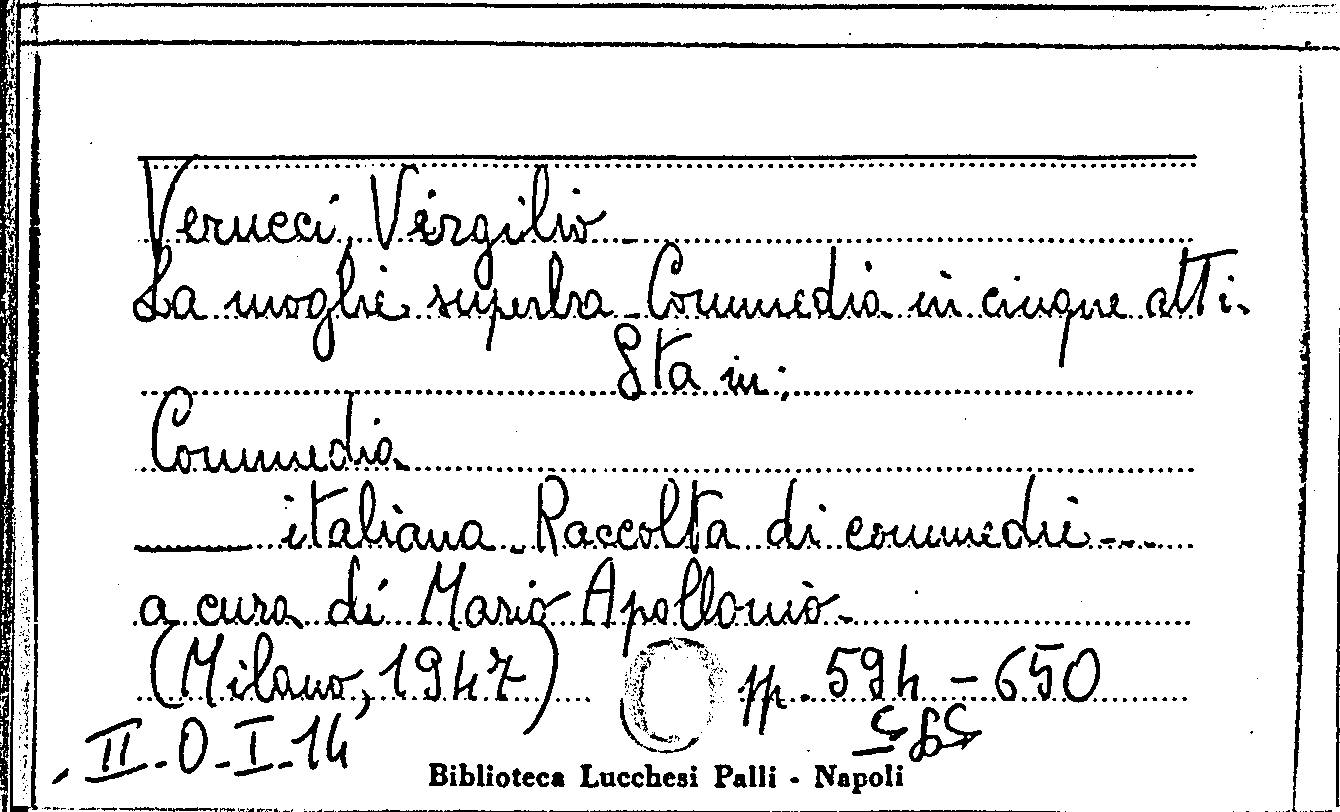 Verucci, Virgilio
La moglie superba - Commedia in cinque atti.
Sta in:
Commedia
______ italiana - Raccolta di commedie ...
a cura di Mario Apollonio -
(Milano, 1947) pp. 594 - 650
II - O - I - 14
Biblioteca Lucchesi Palli - Napoli